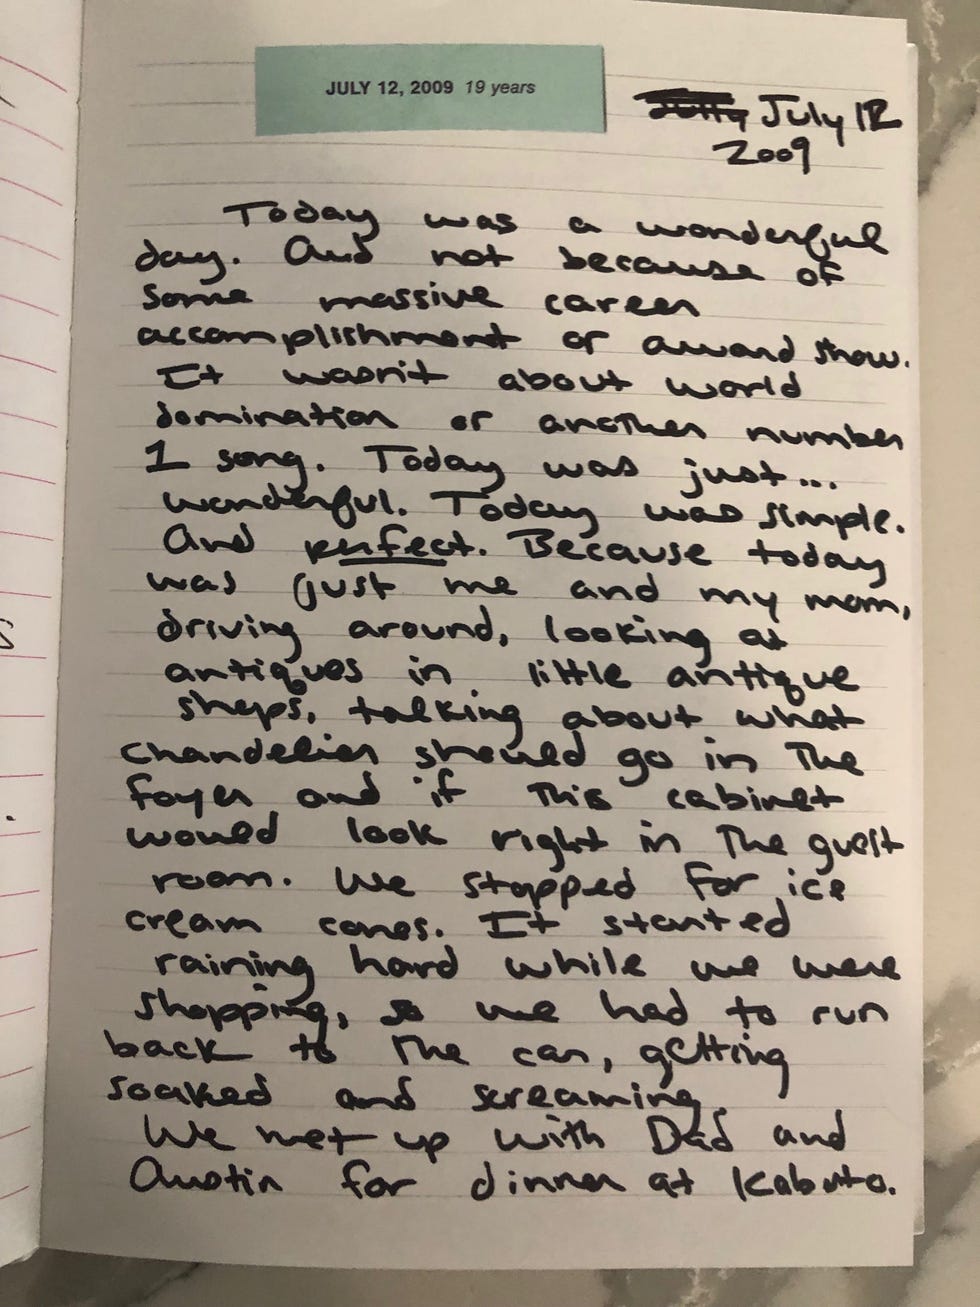 JULY 12, 2009 19 years
July 12
2009
Today was a wonderful
day. And not because of
some massive career
accomplishment or award show.
It wasn't about world
domination or another number
1 song. Today was just...
wonderful. Today was simple.
And perfect. Because today
was just me and my mom,
driving around, looking at
antiques in little antique
shops, talking about what
chandelier should go in the
foyer and if this cabinet
would look right in the guest
room. We stopped for ice
cream cones. It started
raining hard while we were
shopping, so we had to run
back to the car, getting
soaked and screaming.
We met up with Dad and
Austin for dinner at Kabuto.